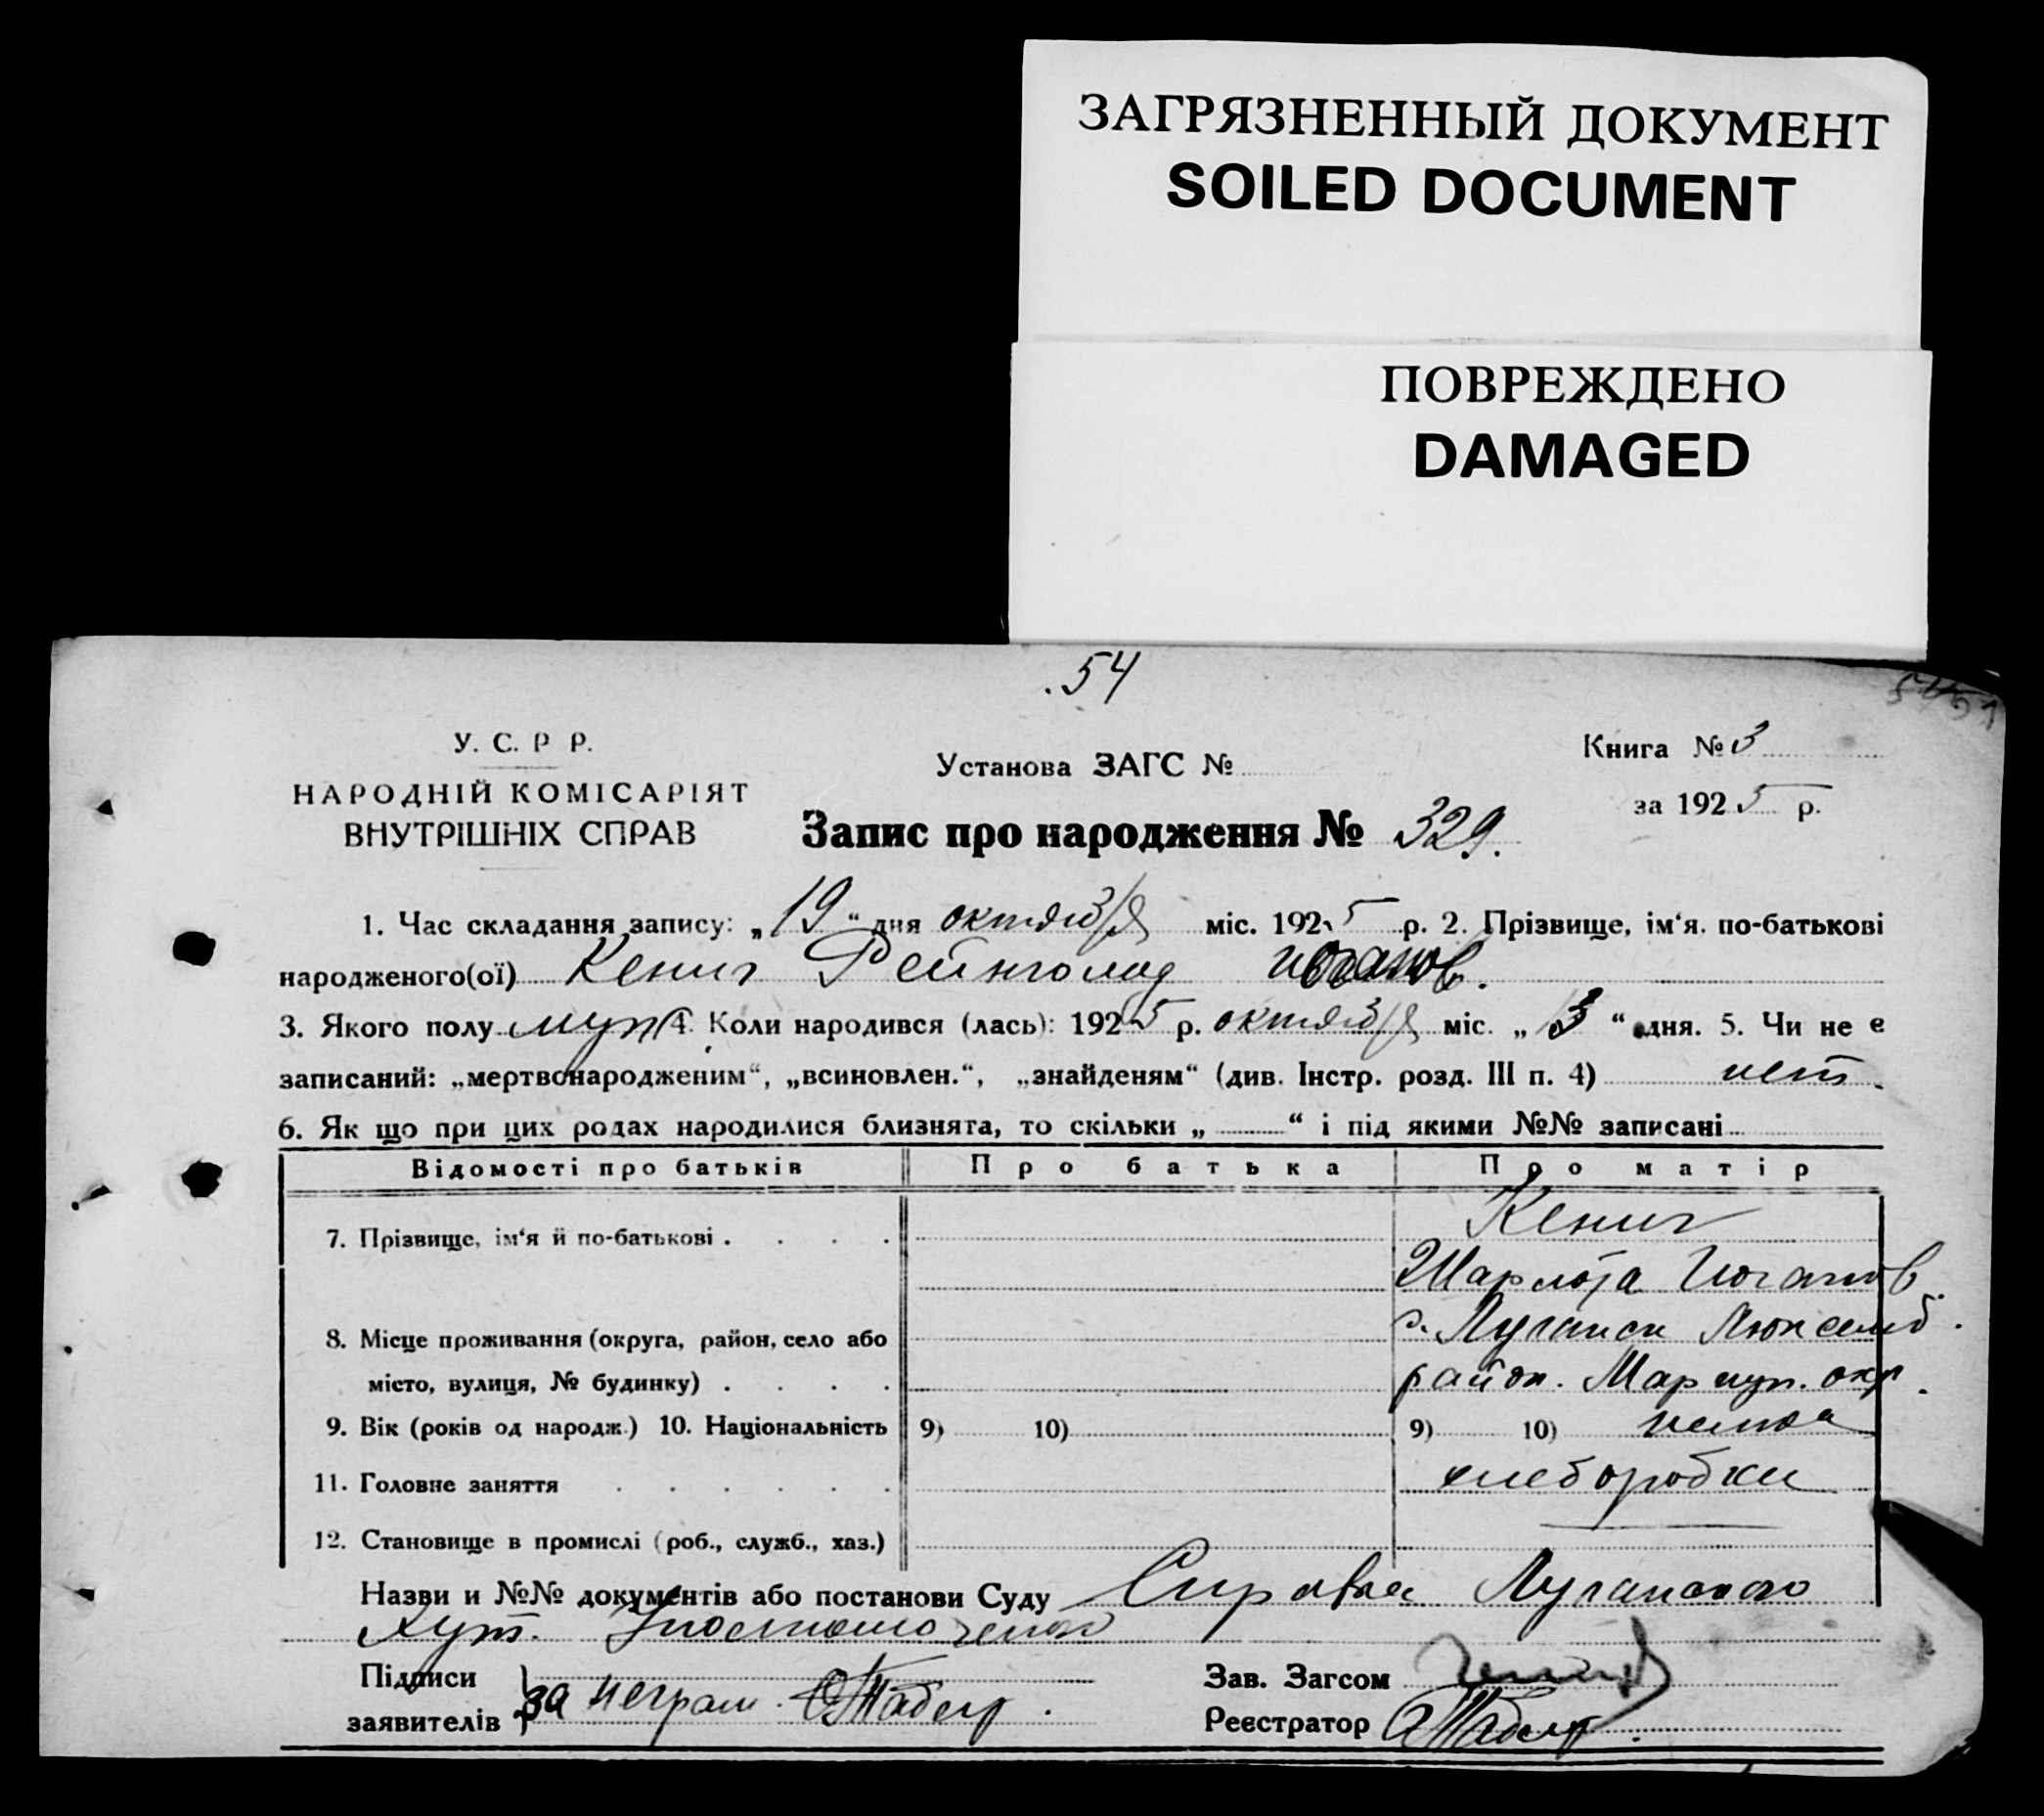 ЗАГРЯЗНЕННЫЙ ДОКУМЕНТ
SOILED DOCUMENT
ПОВРЕЖДЕНО
DAMAGED
.54
У. С. Р Р.
НАРОДНІЙ КОМІСАРІЯТ
ВНУТРІШНІХ СПРАВ
Установа ЗАГС №
Запис про народження № 329.
Книга № 3
за 1925 р.
1. Час складання запису: „19“ дня октября міс. 1925 р. 2. Прізвище, ім'я, по-батькові
народженого(ої) Кениг Рейнголд Иоганов.
3. Якого полу муж 4. Коли народився (лась): 1925 р. октября міс. „13“ дня. 5. Чи не є
записаний: „мертвонародженим“, „всиновлен.“, „знайденям“ (див. Інстр. розд. III п. 4) нет.
6. Як що при цих родах народилися близнята, то скільки „ “ і під якими №№ записані
Відомості про батьків Про батька Про матір
7. Прізвище, ім'я й по-батькові . . . . Кениг
Шарлота Иоганов.
8. Місце проживання (округа, район, село або с. Луганск Люксемб.
місто, вулиця, № будинку) . . . . район. Мариуп. окр.
9. Вік (років од народж.) 10. Національність 9) 10) 9) 10) немка
11. Головне заняття . . . . . . хлеборобки
12. Становище в промислі (роб., служб., хаз.)
Назви и №№ документів або постанови Суду Справка Луганского
хут.
Підписи
заявителів } за неграм. Табер.
Зав. Загсом
Реєстратор Табер.